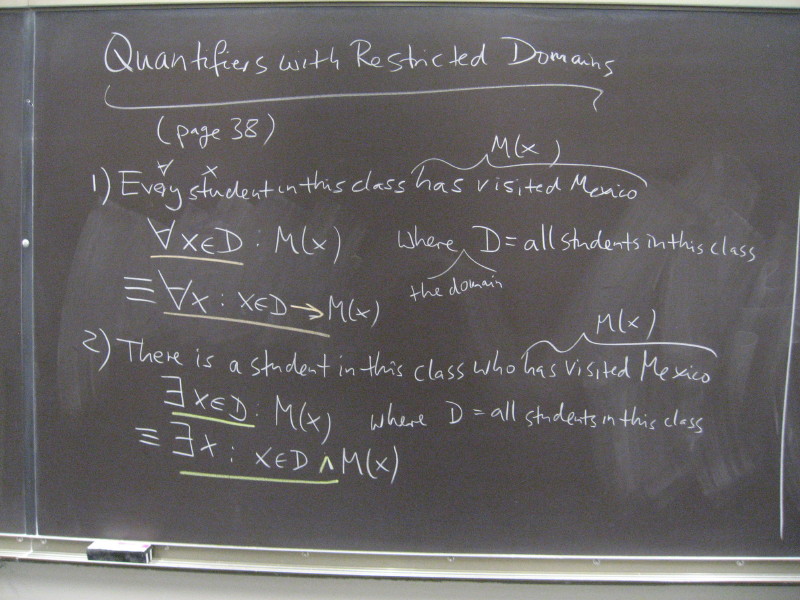 Quantifiers with Restricted Domains
(page 38)
M(x)
∀ x
1) Every student in this class has visited Mexico
∀x∈D : M(x) where D = all students in this class
the domain
≡ ∀x : x∈D → M(x)
M(x)
2) There is a student in this class who has visited Mexico
∃x∈D : M(x) where D = all students in this class
≡ ∃x : x∈D ∧ M(x)